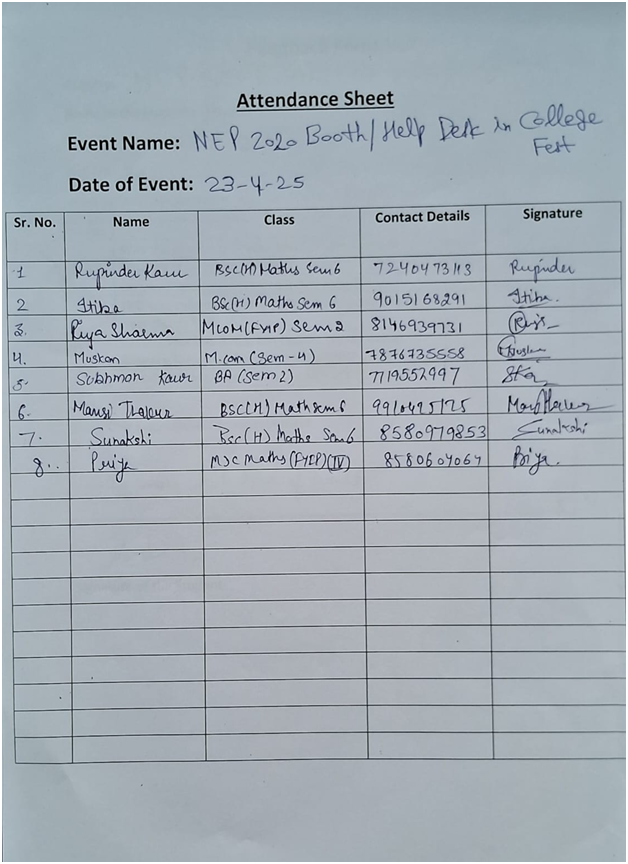 Attendance Sheet
Event Name: NEP 2020 Booth/Help Desk in College
Fest
Date of Event: 23-4-25
Sr. No. Name Class Contact Details Signature
1 Rupinder Kaur BSc(H) Maths Sem 6 7240473113 Rupinder
2 Itiba BSc(H) Maths Sem 6 9015168291 Itiba.
3. Riya Sharma MCOM(FYIP) Sem 2 8146939731
4. Muskan M.com (Sem-4) 7876735558 Muskan
5. Subhman Kaur BA (Sem 2) 7719552997
6. Mansi Thakur BSC(H) Math sem 6 9910495125
7. Sunakshi Bsc(H) Maths Sem 6 8580979853 Sunakshi
8.. Priya MSC Maths (FYIP)(IV) 8580604064 Priya.